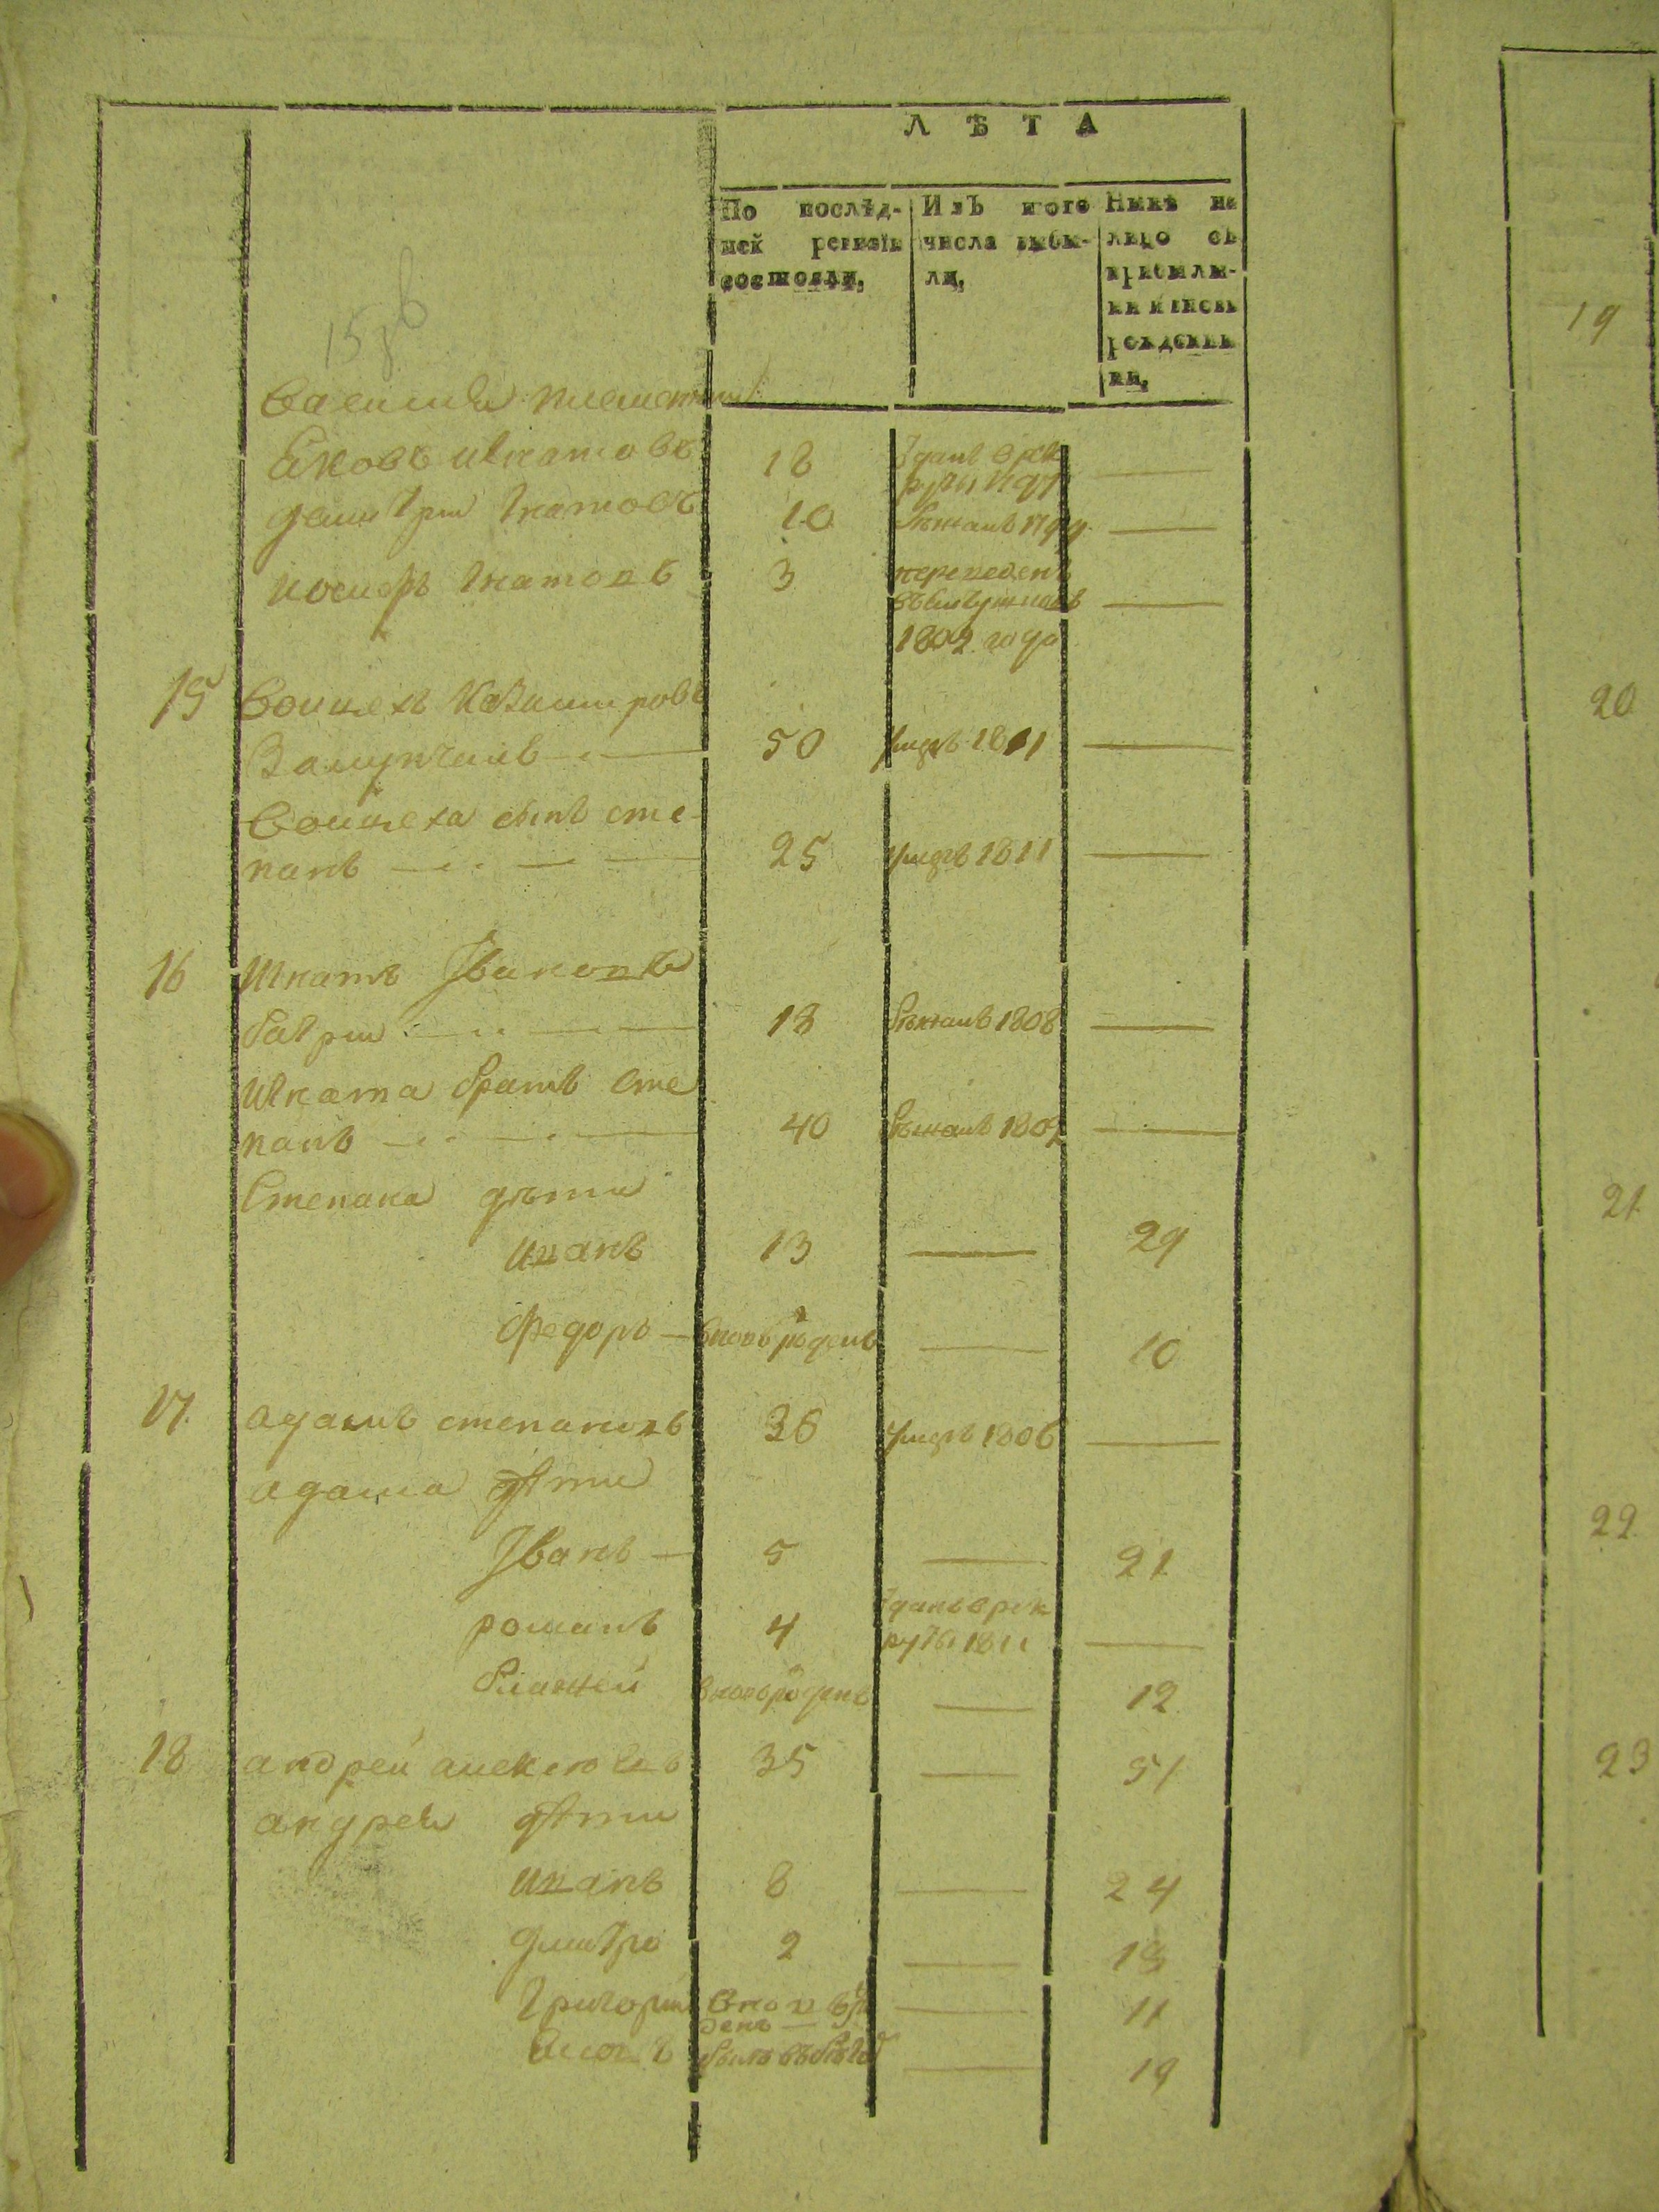 Л Ѣ Т А
По послѣд-
ней ревизіи
состояли,
Изъ того
числа выбы-
ли,
Нынѣ на
лицо съ
прибылы-
ми и вновь
рожденны
ми,
Василия племянники
Яковъ Игнатовъ 18 Зданъ в рек
руты 1797 —
Дмитрии Игнатовъ 10 Бежалъ 1799 —
Иосифъ Игнатовъ 3 переведенъ
—
1802 года
15 Воицехъ Казимировъ
50 умре 1811 —
Воицеха сынъ Сте
панъ — 25 умре 1811 —
16 Игнатъ Ивановъ
18 бежалъ 1808 —
Игната братъ Сте
панъ — 40 бежалъ 1807 —
Степана дѣти
Иванъ 13 — 29
Федоръ — вновь рожденъ — 10
17 Адамъ Степановъ 36 умре 1806 —
Адама дѣти
Іванъ — 5 — 21
Романъ 4 Зданъ в рек
руты 1811 —
Блажей вновь рожденъ — 12
18 Андрей Алексѣевъ 35 — 51
Андрея дѣти
Иванъ 8 — 24
Дмитро 2 — 18
Григорий вновь ро
денъ — — 11
былъ въ бѣгах — 19
19
20
21
22
23